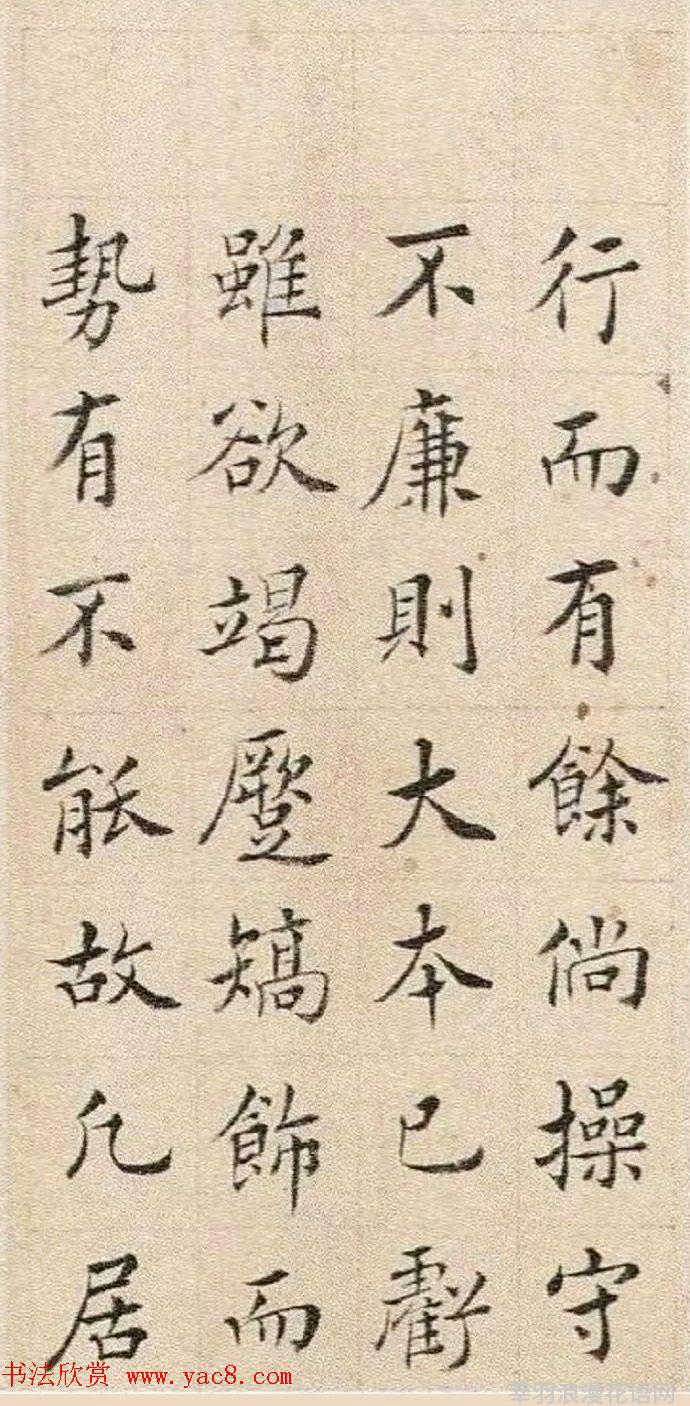 行而有餘倘操守
不廉則大本已虧
雖欲竭蹷矯飾而
勢有不能故凡居
书法欣赏 www.yac8.com
羽浪漫花语网